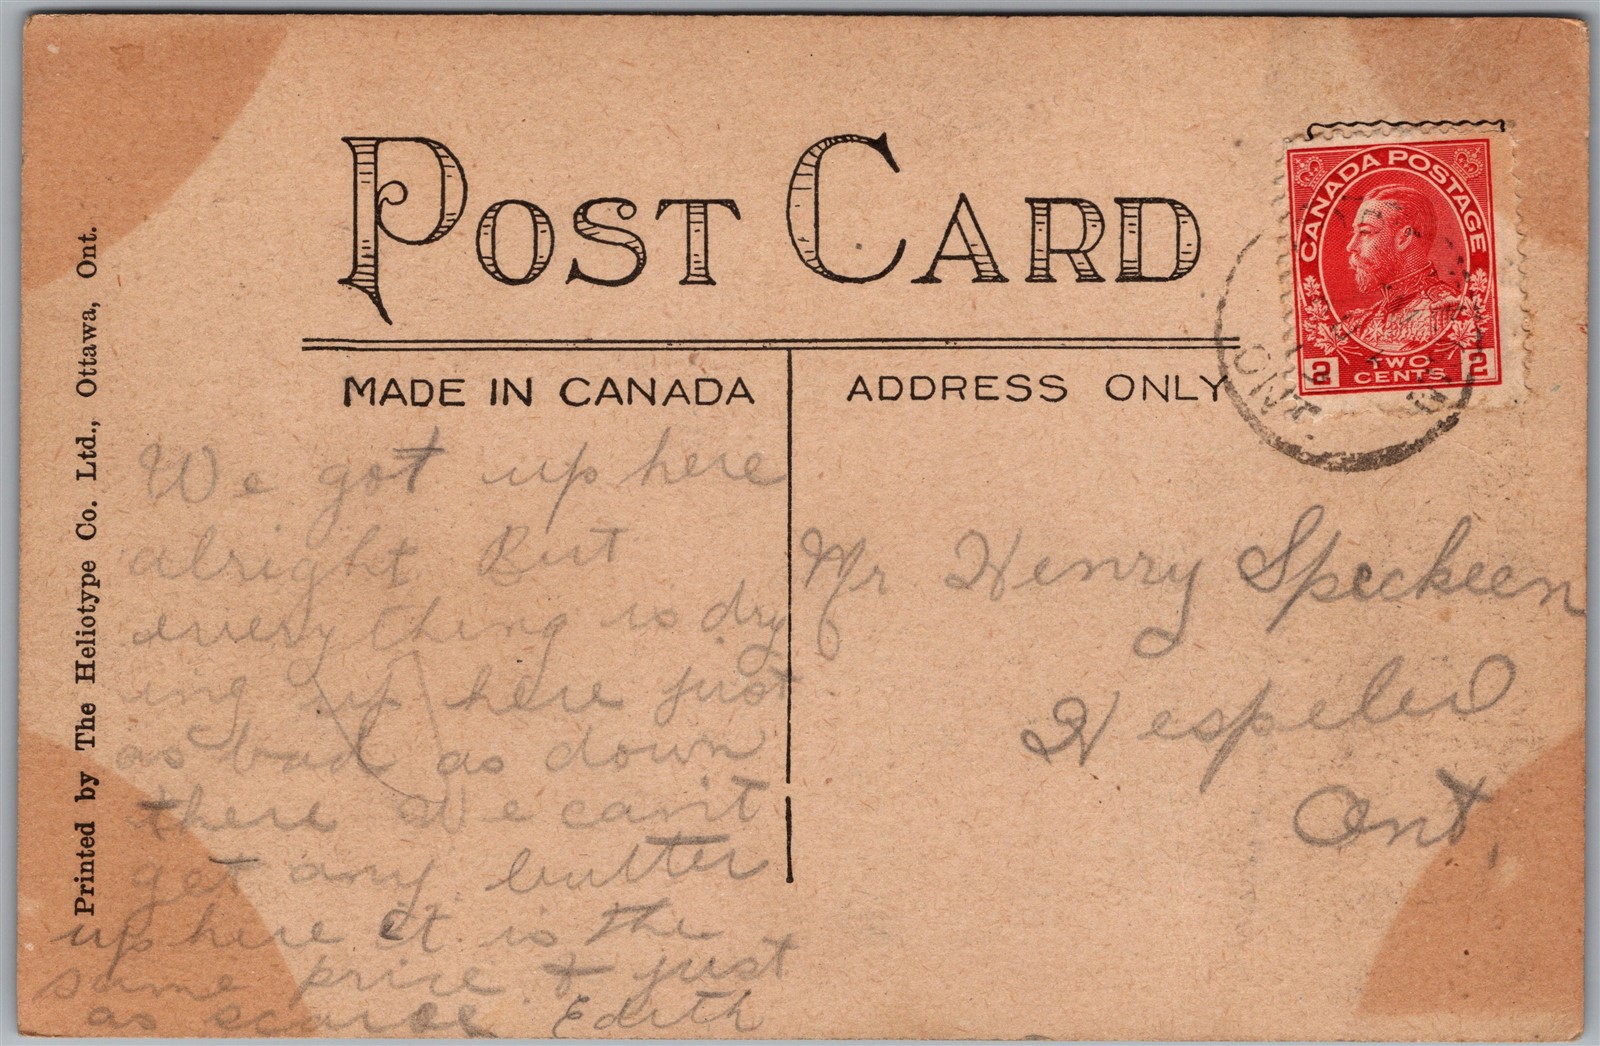 POST CARD
MADE IN CANADA
ADDRESS ONLY
CANADA POSTAGE
2 TWO CENTS 2
ONT.
Printed by The Heliotype Co. Ltd., Ottawa, Ont.
We got up here
alright But
everything is dry
ing up here just
as bad as down
there We can't
get any butter
up here it is the
same price & just
as scarce Edith
Mr Henry Speckeen
Hespeler
Ont,